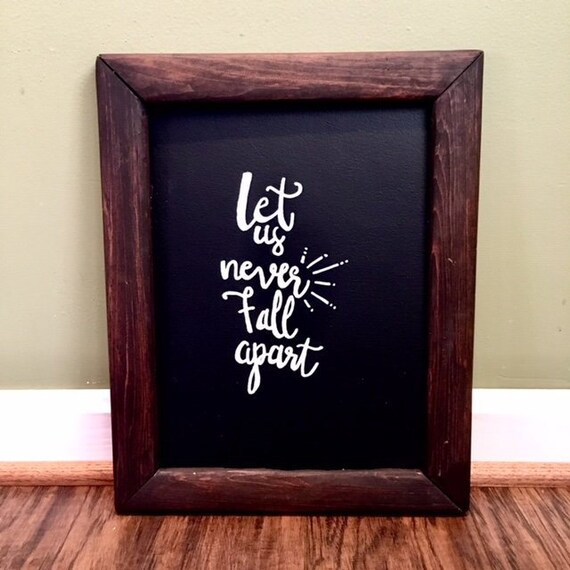 Let
us
never
fall
apart